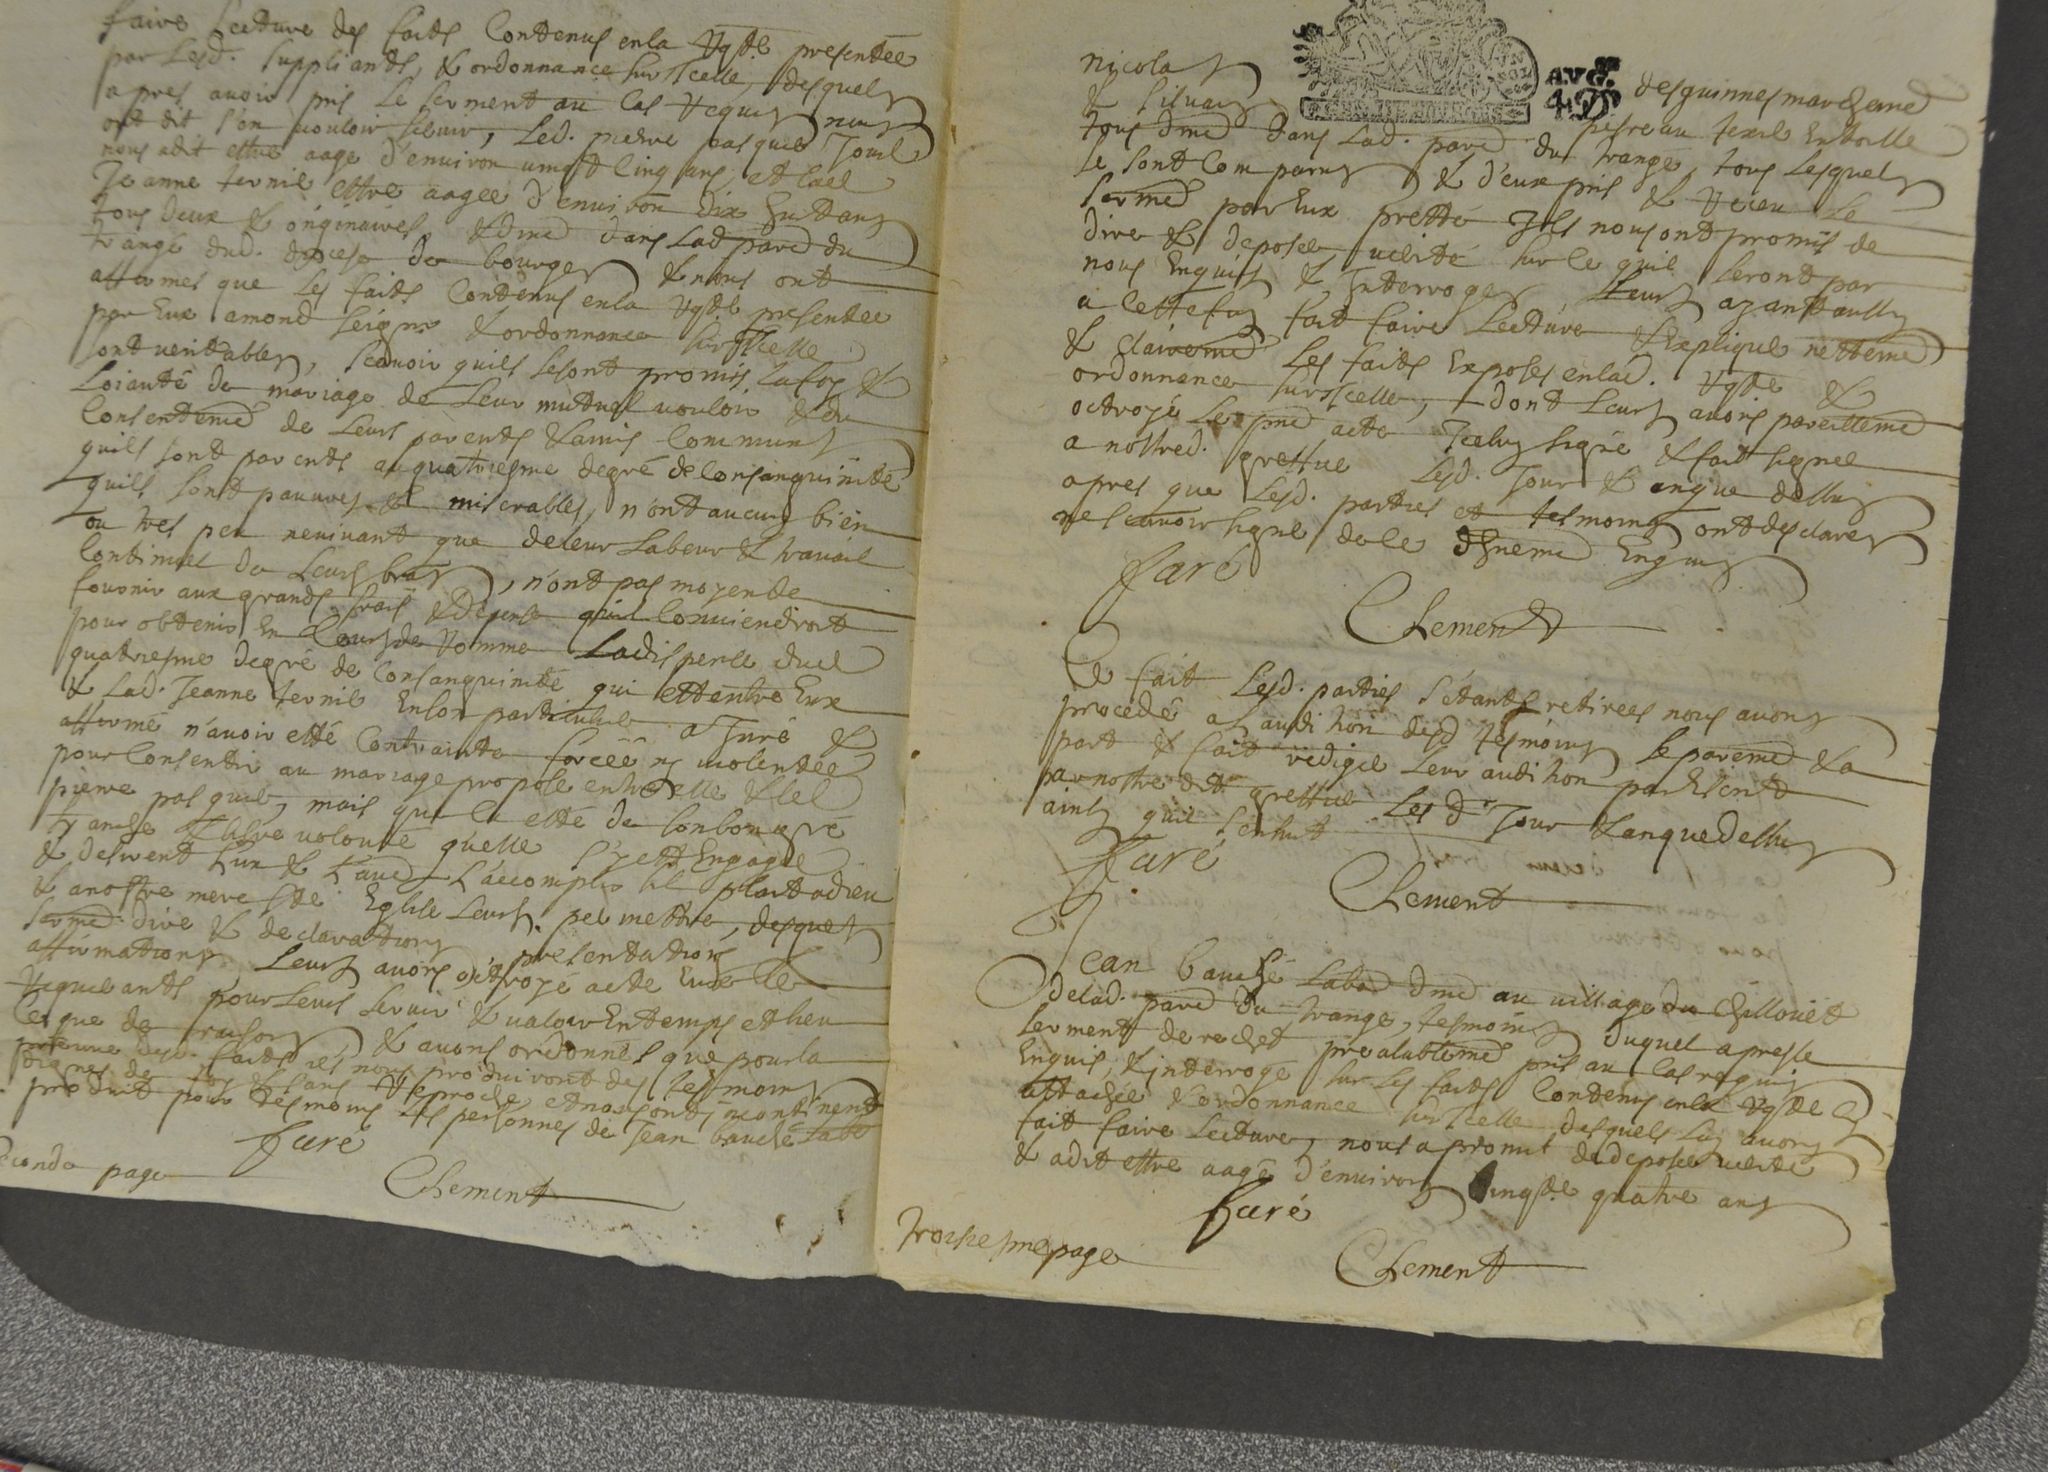 faire lecture des faits Contenus en la Rqste presentée
par Lesd. suppliants, & ordonnance sur Icelle, desquels
apres avoir pris Le serment au Cas Requis nous
ont dit s'en vouloir servir, Led. pierre pasquet
nous a dit estre aagé d'environ vingt Cinq ans, et lad.
Jeanne ternil estre aagee d'environ dix huit ans
tous deux & originaires, & dmt dans Lad parce du
trangé dud. diocese de bourges & nous ont
affirmes que les faits Contenus en la Rqste presentée
par Eux a mond seignr & ordonnance sur Icelle
sont veritables, scavoir quils se sont promis la foy &
Loiauté de mariage de Leur mutuel vouloir & du
Consentemt de Leurs parents & amis Communs
quils sont parents au quatriesme degré de Consanguinité
quils sont pauvres & miserables, n'ont aucuns bien
ou tres peu ne vivant que de leur Labeur & travail
Continuel de Leurs bras, n'ont pas moyen de
fournir aux grands frais & dépense quil Conviendroit
pour obtenir En Cour de Romme La dispense dud
quatriesme degré de Consanguinité qui est entre Eux
& Lad. Jeanne ternil En son particulier a Juré &
affirmé n'avoir esté Contrainte forcéé ny violentée
pour Consentir au mariage proposé entre Elle & led
pierre pasquet, mais que C'a esté de son bon gré
franche & libre volonté quelle s'y est Engagée
& desirent L'un & L'aue L'accomplir sil plait a dieu
& a nostre mere Ste Eglise Leurs permettre, desquels
sermt dire & declarations presentations
affirmations Leurs avons octroyé acte
Requerants pour Leurs servir & valoir En temps et lieu
Ce que de raison & avons ordonné que pour la
preuve desd. faits ils nous produiront des tesmoins
dignes de foy & sans Reproche et nous ont incontinent
produit pour tesmoins Les personnes de Jean bauché Labr
faré
Clement
seconde page
AVG.
4. D
nicolas desquinnes marchand
& silvain texie
tous dmt dans Lad. parce du trangé, tous Lesquels
se sont Comparus & d'eux pris & Receu Le
sermt par Eux presté Ils nous ont promis de
dire & deposer verité sur Ce quils seront par
nous Enquis & Interrogés Leurs ayant aussy
a Cette fin fait faire Lecture & Expliqué nettemt
& clairemt Les faits Exposés en lad. Rqste &
ordonnance sur Icelle, dont Leurs avons pareillemt
octroyé Le pnt acte Iceluy signé & fait signer
a nostred. greffier Lesd. Jour & an que dessus
apres que Lesd. parties et tesmoins ont desclarés
ne scavoir signer de Ce Enquis
faré
Clement
Ce fait Lesd. parties s'étants retirees nous avons
procédé a L'audition desd tesmoins separemt & a
part & fait rediger Leur audition par Escrit
par nostre dit greffier Les dt Jour & an que dessus
ainsy quil s'ensuit
faré
Clement
Jean bauché Labr dmt au village du Chillouët
de lad. parce du trangé, tesmoin duquel apres le
serment de rechef prealablemt pris au Cas requis
Enquis, & interrogé sur Les faits Contenus en la Rqste Cy
attachée & ordonnance sur Icelle desquels Luy avons
fait faire Lecture, nous a promit de deposer verité
& a dit estre aagé d'environ quatre ans
faré
Clement
troisiesme page